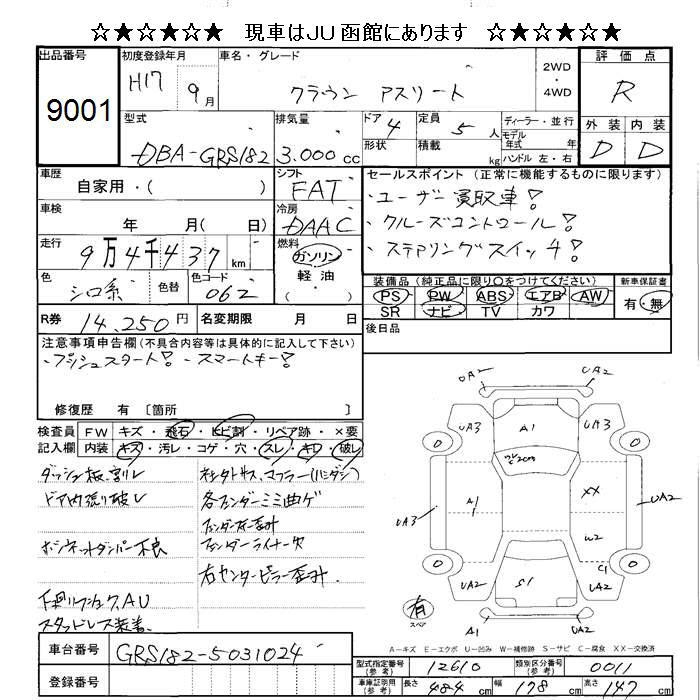 ☆★☆★☆★ 現車はJU函館にあります ☆★☆★☆★
出品番号 9001
初度登録年月 H17 9月
車名・グレード クラウン アスリート
2WD・4WD
評価点 R
外装 D 内装 D
型式 DBA-GRS182
排気量 3.000cc
ドア 4
形状
定員 5人
積載 kg
ディーラー・並行
モデル年式 年
ハンドル 左・右
車歴 自家用・( )
シフト FAT
セールスポイント (正常に機能するものに限ります)
・ユーザー買取車!
・クルーズコントロール!
・ステアリングスイッチ!
車検 年 月( 日)
冷房 DAAC
走行 9万4千437km
燃料 ガソリン 軽油 ( )
色 シロ系 色替 色コード 062
装備品 (純正品に限り○をつけてください) 新車保証書
PS PW ABS エアB AW 有・無
SR ナビ TV カワ
R券 14.250円 名変期限 月 日
後日品
注意事項申告欄(不具合内容等は具体的に記入して下さい)
・プッシュスタート!・スマートキー!
修復歴 有 [箇所
検査員記入欄
FW キズ・飛石・ヒビ割・リペア跡・×要
内装 キズ・汚レ・コゲ・穴・スレ・キレ・破レ
ダッシュ板割レ
ドア内張リ破レ
ボンネットダンパー不良
スタッドレス装着
各フェンダーミミ曲ゲ
フェンダーライナー欠
右センターピラー歪ミ
UA2 UA2
UA3 A1 UA3
A1 XX
UA3 UA2
W2
UA2 S1 C1 UA2
A1 UA2
有 スペア
A-キズ E-エクボ U-凹み W-補修跡 S-サビ C-腐食 XX-交換済
車台番号 GRS182-5031024
登録番号
型式指定番号(参考) 12610 類別区分番号(参考) 0011
車庫証明用(参考) 長さ 484cm 幅 178cm 高さ 147cm